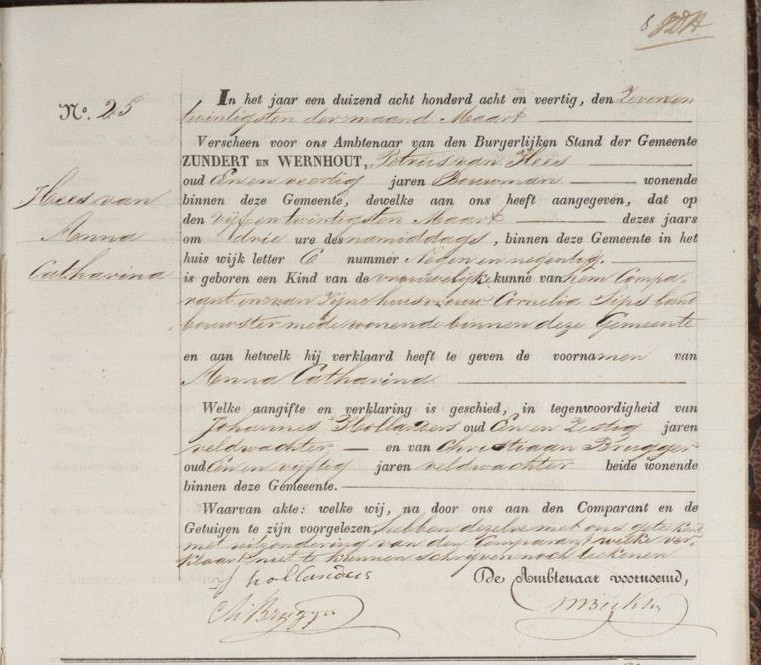 8
No. 25
Hees van
Anna
Catharina
In het jaar een duizend acht honderd acht en veertig, den Zeven en
twintigsten der maand Maart
Verscheen voor ons Ambtenaar van den Burgerlijken Stand der Gemeente
ZUNDERT EN WERNHOUT, Petrus van Hees
oud Een en veertig jaren Bouwman wonende
binnen deze Gemeente, dewelke aan ons heeft aangegeven, dat op
den vijf en twintigsten Maart dezes jaars
om drie ure des namiddags, binnen deze Gemeente in het
huis wijk letter C nummer Negen en negentig.
is geboren een Kind van de vrouwelijke kunne van hem Compa-
rant en van zijne huisvrouw Cornelia Sips land
bouwster mede wonende binnen deze Gemeente
en aan hetwelk hij verklaard heeft te geven de voornamen van
Anna Catharina
Welke aangifte en verklaring is geschied, in tegenwoordigheid van
Johannes Hollanders oud Een en Zestig jaren
veldwachter — en van Christiaan Brugger
oud Een en vijftig jaren veldwachter beide wonende
binnen deze Gemeeente.
Waarvan akte: welke wij, na door ons aan den Comparant en de
Getuigen te zijn voorgelezen, hebben dezelve met ons getekend
met uitzondering van den Comparant welke ver-
klaart niet te kunnen schrijven noch teekenen
J hollanders
De Ambtenaar voornoemd,
Ch Brugger